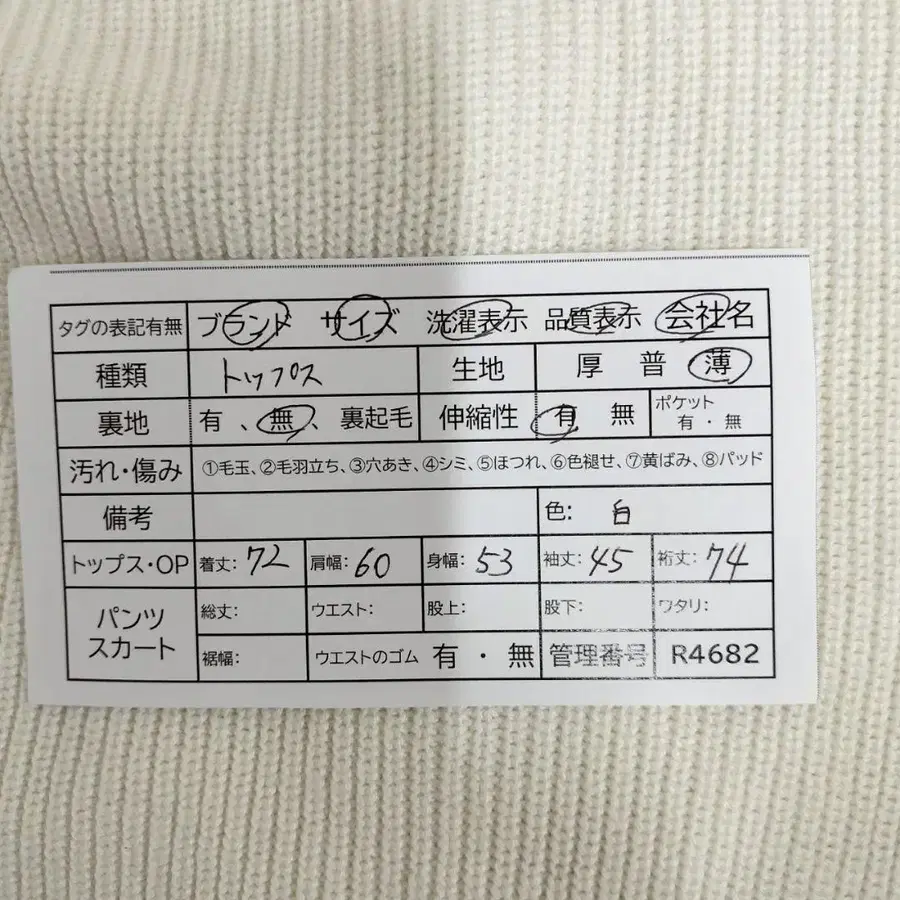 タグの表記有無 ブランド サイズ 洗濯表示 品質表示 会社名
種類 トップス 生地 厚 普 薄
裏地 有、無、裏起毛 伸縮性 有 無 ポケット 有・無
汚れ・傷み ①毛玉、②毛羽立ち、③穴あき、④シミ、⑤ほつれ、⑥色褪せ、⑦黄ばみ、⑧パッド
備考 色: 白
トップス・OP 着丈: 72 肩幅: 60 身幅: 53 袖丈: 45 裄丈: 74
パンツ スカート 総丈: ウエスト: 股上: 股下: ワタリ:
裾幅: ウエストのゴム 有・無 管理番号 R4682